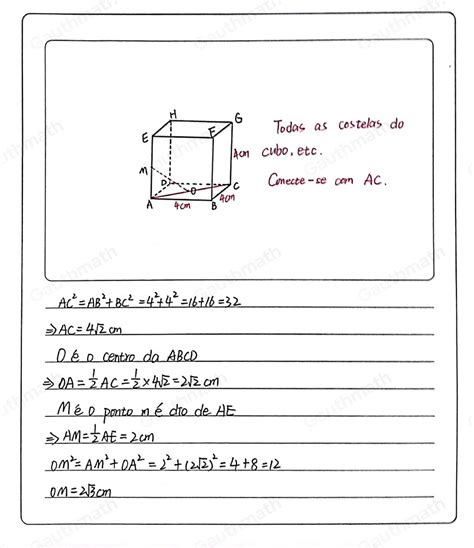 H
G
E
F
Todas as costelas do
4cm
cubo, etc.
M
D
C
Conecte-se com AC.
O
A
4cm
B
4cm
AC² = AB² + BC² = 4² + 4² = 16 + 16 = 32
⇒ AC = 4√2 cm
O é o centro da ABCD
⇒ OA = 1/2 AC = 1/2 × 4√2 = 2√2 cm
M é o ponto m é dio de AE
⇒ AM = 1/2 AE = 2cm
OM² = AM² + OA² = 2² + (2√2)² = 4 + 8 = 12
OM = 2√3 cm
Gauthmath